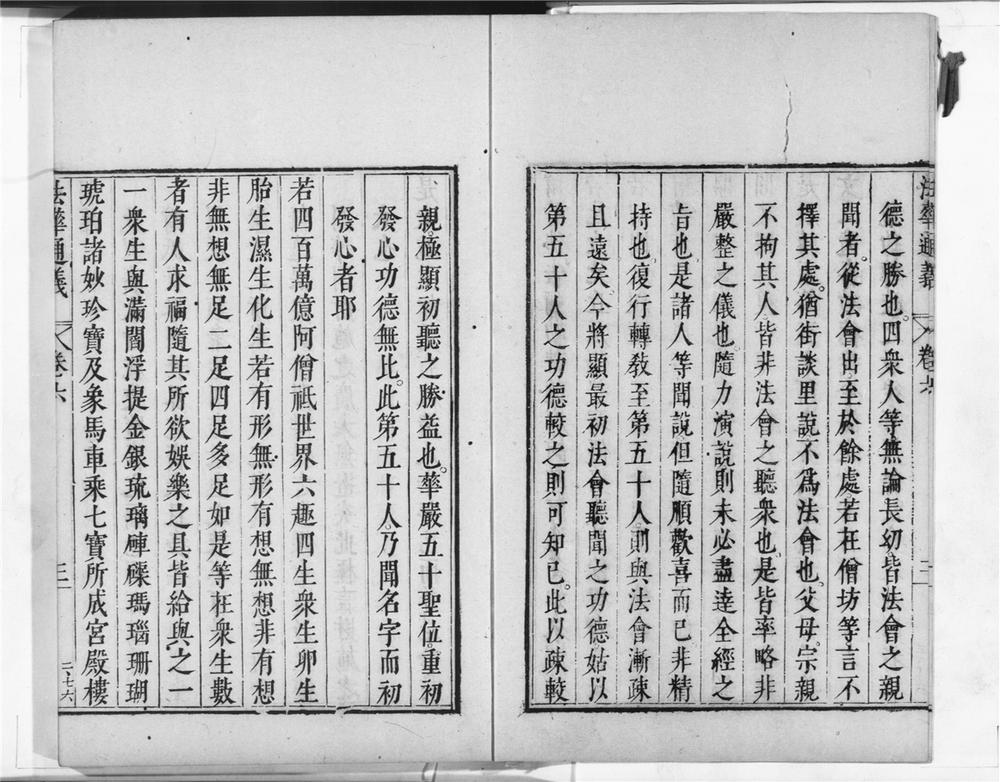 法華通義 卷六 二
德之勝也。四衆人等無論長幼皆法會之親
聞者。從法會出至於餘處。若在僧坊等言不
擇其處。猶街談里說不爲法會也。父母。宗親
不拘其人皆非法會之聽衆也。是皆率略非
嚴整之儀也。隨力演說則未必盡達全經之
旨也是諸人等聞說但隨順歡喜而已非精
持也。復行轉教至第五十人。則與法會漸疎
且遠矣今將顯最初法會聽聞之功德姑以
第五十人之功德較之則可知已。此以疎較
親。極顯初聽之勝益也。華嚴五十聖位。重初
發心功德無比。此第五十人。乃聞名字而初
發心者耶
若四百萬億阿僧祇世界六趣四生衆生卵生
胎生濕生化生若有形無形有想無想非有想
非無想無足二足四足多足如是等在衆生數
者有人求福隨其所欲娛樂之具皆給與之一
一衆生與滿閻浮提金銀琉璃硨磲瑪瑙珊瑚
琥珀諸妙珍寶及象馬車乘七寶所成宮殿樓
法華通義 卷六 三 三七六